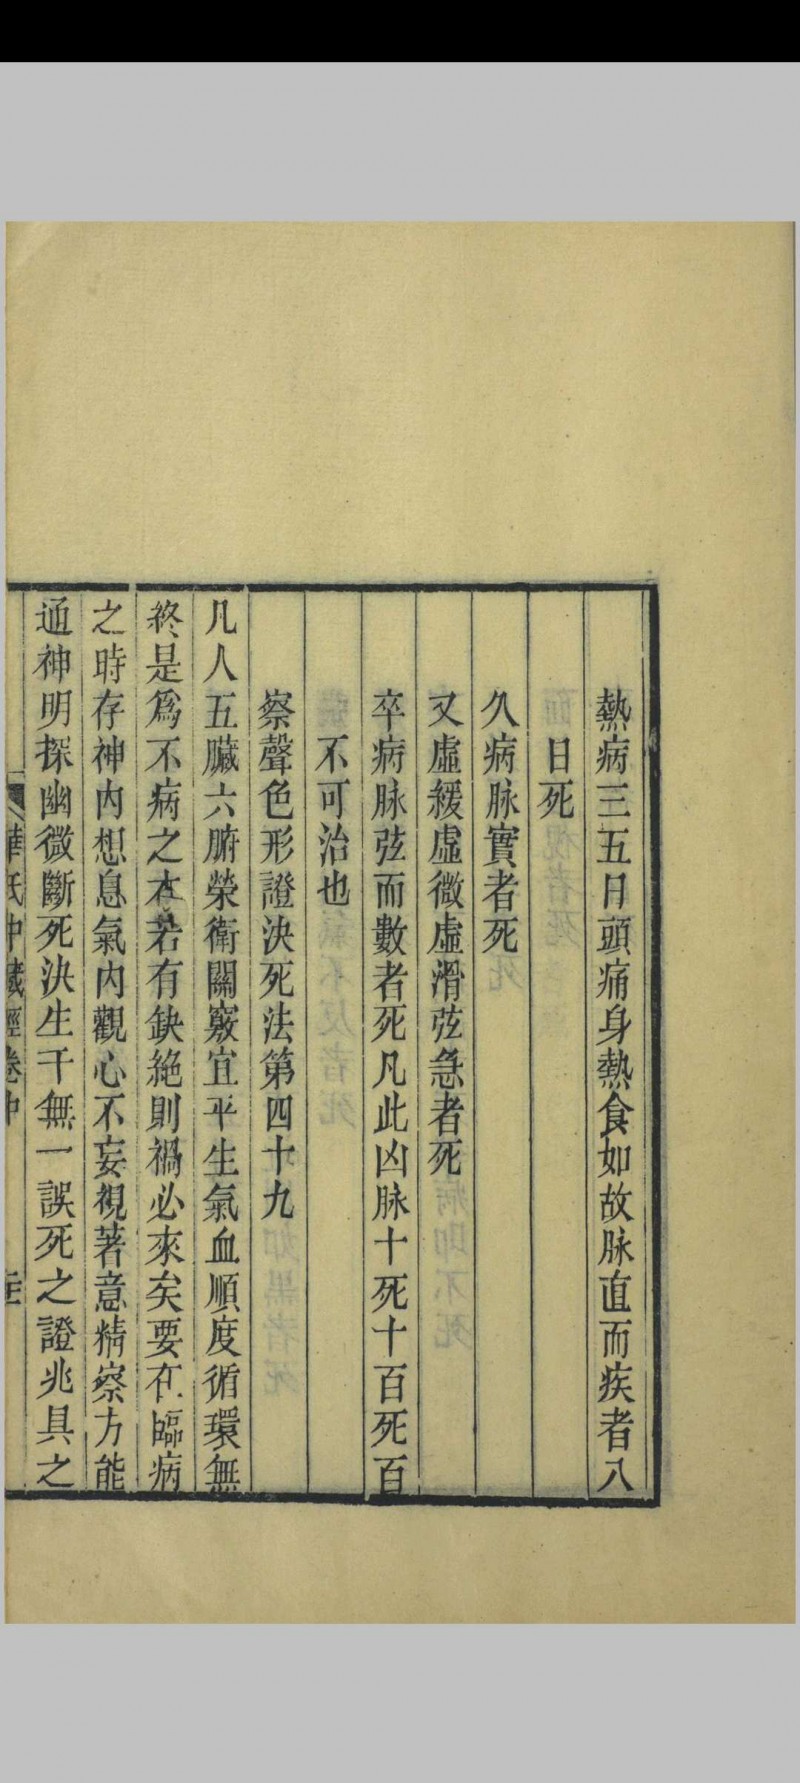 熱病三五日頭痛身熱食如故脉直而疾者八
日死
久病脉實者死
又虛緩虛微虛滑弦急者死
卒病脉弦而數者死凡此凶脉十死十百死百
不可治也
察聲色形證決死法第四十九
凡人五臟六腑榮衛關竅宜平生氣血順度循環無
終是爲不病之本若有缺絶則禍必來矣要在臨病
之時存神內想息氣內觀心不妄視著意精察方能
通神明探幽微斷死決生千無一誤死之證兆具之
華氏中藏經卷中